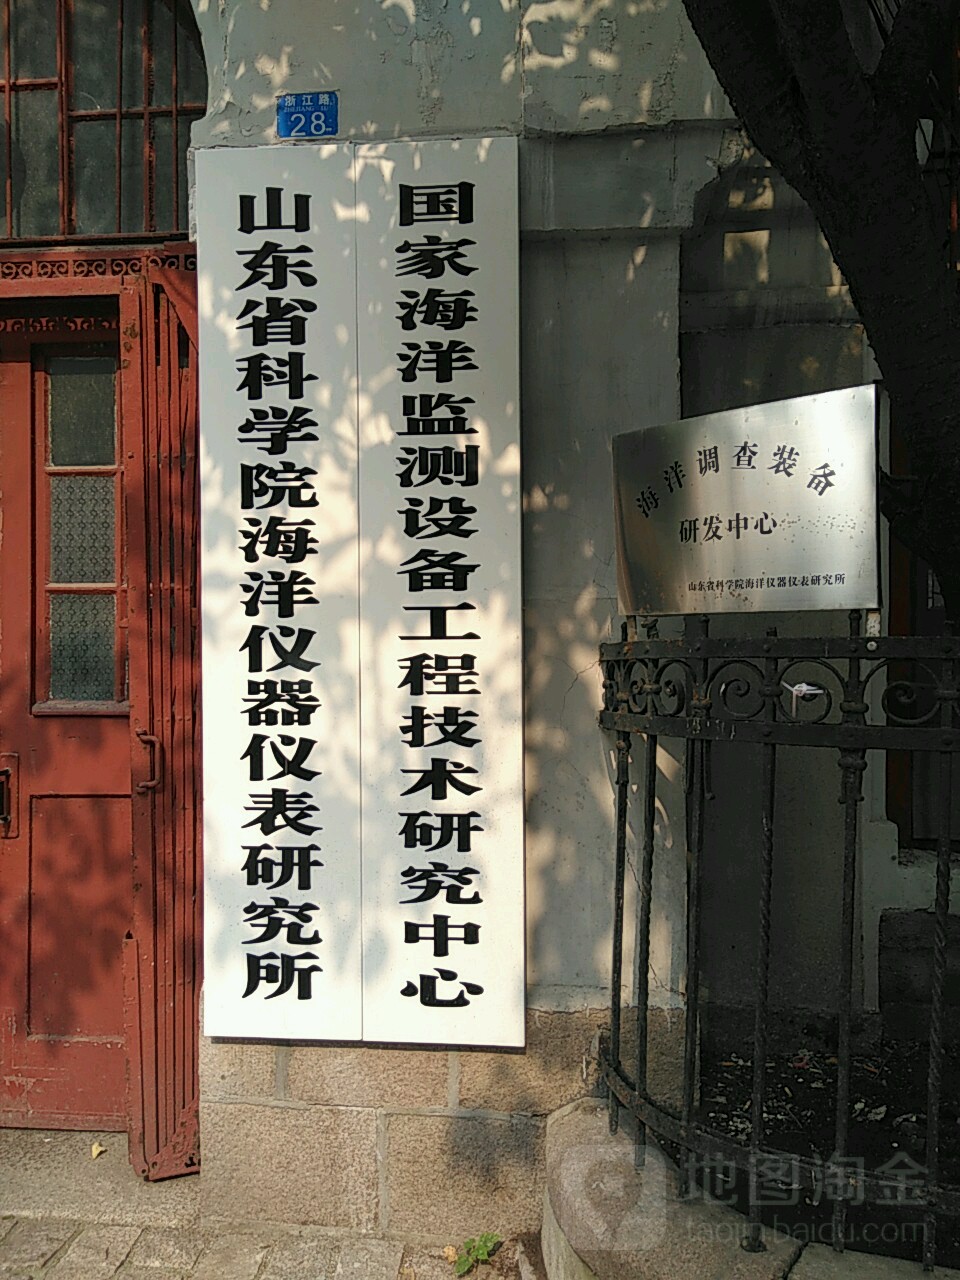 浙江路
ZHEJIANG LU
28
国家海洋监测设备工程技术研究中心
山东省科学院海洋仪器仪表研究所
海洋调查装备
研发中心
山东省科学院海洋仪器仪表研究所
地图淘金
taojin.baidu.com